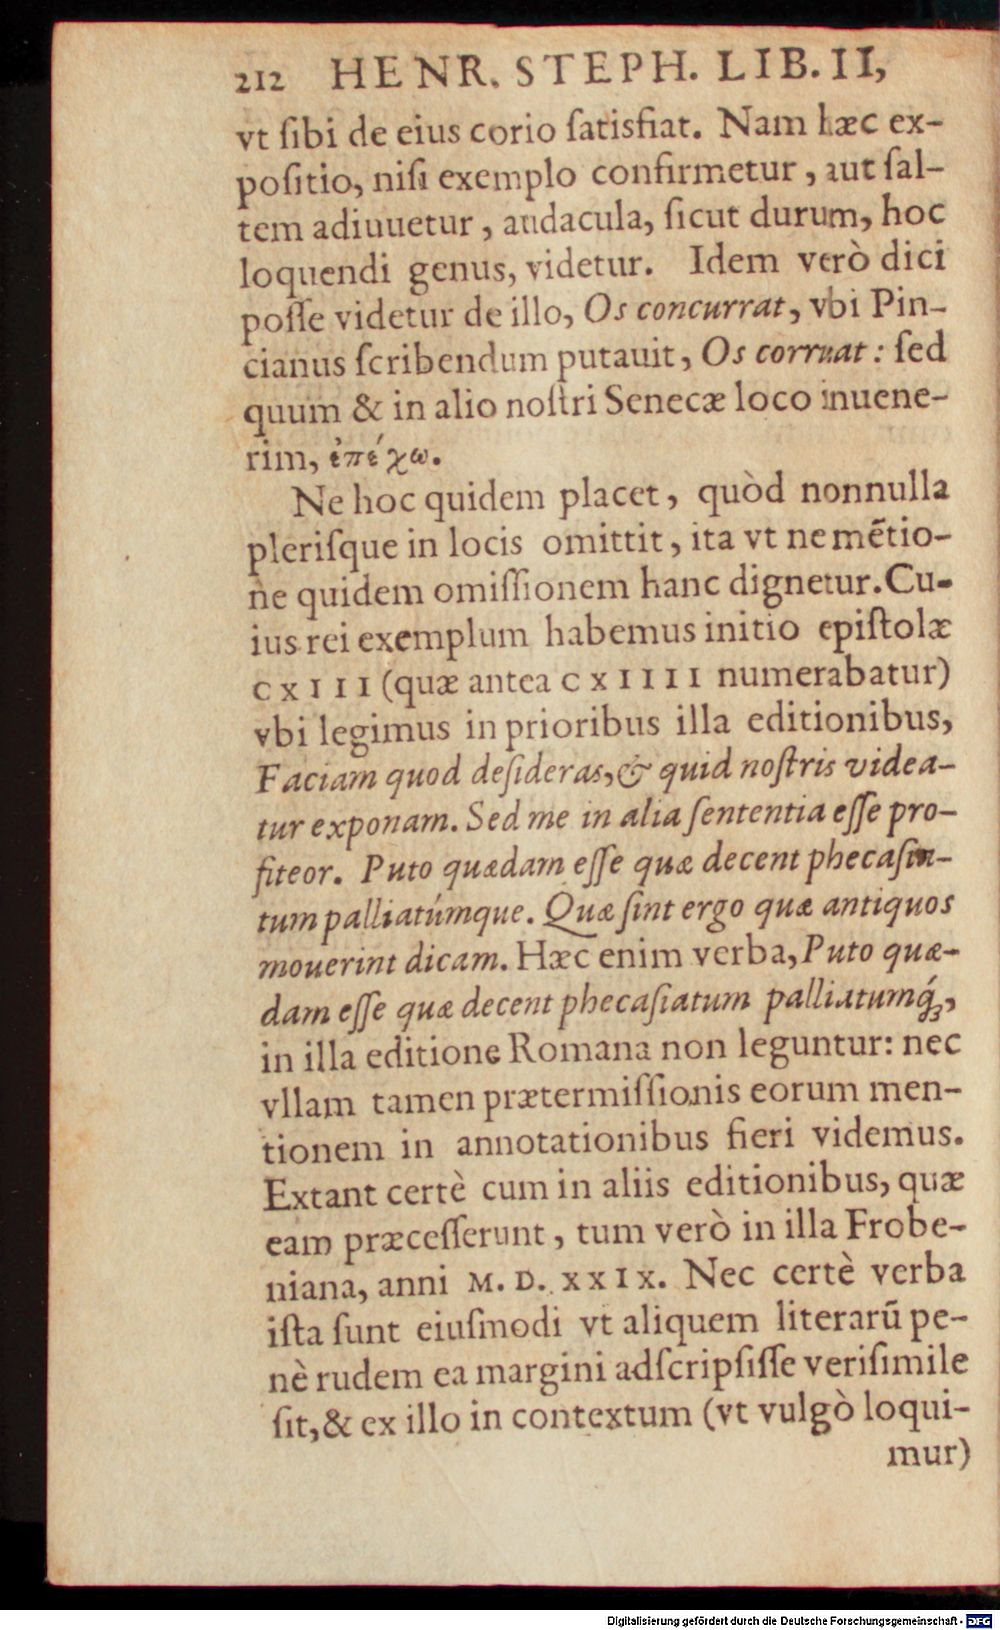 212 HENR. STEPH. LIB. II,
vt ſibi de eius corio ſatisfiat. Nam hæc ex-
poſitio, niſi exemplo confirmetur, aut ſal-
tem adiuuetur, audacula, ſicut durum, hoc
loquendi genus, videtur. Idem verò dici
poſſe videtur de illo, Os concurrat, vbi Pin-
cianus ſcribendum putauit, Os corruat: ſed
quum & in alio noſtri Senecæ loco inuene-
rim, ἐπέχω.
Ne hoc quidem placet, quòd nonnulla
pleriſque in locis omittit, ita vt ne mẽtio-
ne quidem omiſſionem hanc dignetur. Cu-
ius rei exemplum habemus initio epiſtolæ
CXIII (quæ antea CXIIII numerabatur)
vbi legimus in prioribus illa editionibus,
Faciam quod deſideras, & quid noſtris videa-
tur exponam. Sed me in alia ſententia eſſe pro-
fiteor. Puto quædam eſſe quæ decent phecaſin-
tum palliatúmque. Quæ ſint ergo quæ antiquos
mouerint dicam. Hæc enim verba, Puto quæ-
dam eſſe quæ decent phecaſiatum palliatumq́;,
in illa editione Romana non leguntur: nec
vllam tamen prætermiſſionis eorum men-
tionem in annotationibus fieri videmus.
Extant certè cum in aliis editionibus, quæ
eam præceſſerunt, tum verò in illa Frobe-
niana, anni M. D. XXIX. Nec certè verba
iſta ſunt eiuſmodi vt aliquem literarũ pe-
nè rudem ea margini adſcripſiſſe veriſimile
ſit, & ex illo in contextum (vt vulgò loqui-
mur)
Digitalisierung gefördert durch die Deutsche Forschungsgemeinschaft - DFG